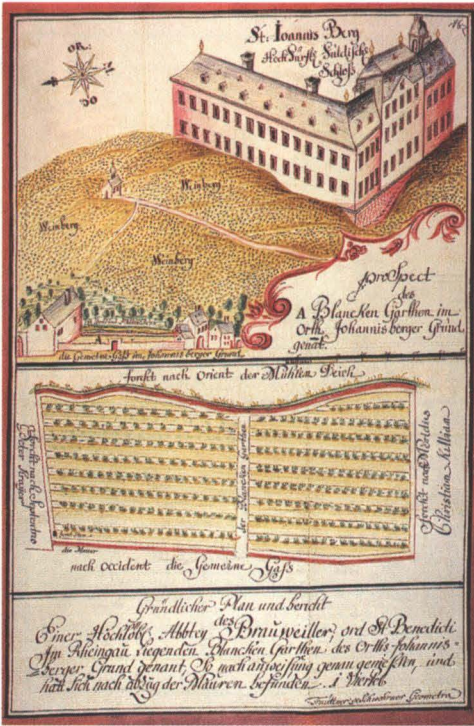 St. Ioannis Berg
HochFürstl. Fuldisch
Schloss
OR.
OC
Weinberg
Weinberg
Weinberg
Prospect
des
A Blancken Garthen im
Orth Johannisberger Grund
genāt.
die Gemeine Gaß im Johannisberger Grund
forcht nach Orient der Mühlen Deich
der Blancken Garthen
die Mauer
nach occident die Gemeine Gaß
Gründlicher Plan und bericht
des
Einer Hochlobl. Abbtey Brauweiller, ord St Benedicti
Im Rheingau Liegenden Blancken Garthens des Orths Johannis-
Berger Grund genant, So nach anweißung genau gemeßen, und
hatt sich nach abzug der Mauren befunden. 1 Viertel
Geometra